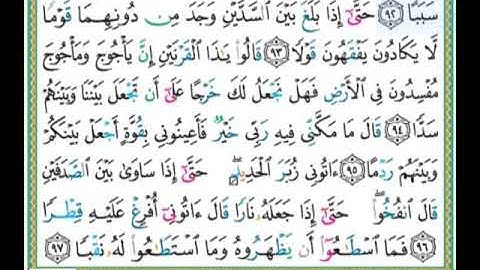 سَبَبًا ﴿٩٢﴾ حَتَّىٰٓ إِذَا بَلَغَ بَيْنَ ٱلسَّدَّيْنِ وَجَدَ مِن دُونِهِمَا قَوْمًا
لَّا يَكَادُونَ يَفْقَهُونَ قَوْلًا ﴿٩٣﴾ قَالُوا۟ يَٰذَا ٱلْقَرْنَيْنِ إِنَّ يَأْجُوجَ وَمَأْجُوجَ
مُفْسِدُونَ فِى ٱلْأَرْضِ فَهَلْ نَجْعَلُ لَكَ خَرْجًا عَلَىٰٓ أَن تَجْعَلَ بَيْنَنَا وَبَيْنَهُمْ
سَدًّا ﴿٩٤﴾ قَالَ مَا مَكَّنِّى فِيهِ رَبِّى خَيْرٌ فَأَعِينُونِى بِقُوَّةٍ أَجْعَلْ بَيْنَكُمْ
وَبَيْنَهُمْ رَدْمًا ﴿٩٥﴾ ءَاتُونِى زُبَرَ ٱلْحَدِيدِ ۖ حَتَّىٰٓ إِذَا سَاوَىٰ بَيْنَ ٱلصَّدَفَيْنِ
قَالَ ٱنفُخُوا۟ ۖ حَتَّىٰٓ إِذَا جَعَلَهُۥ نَارًا قَالَ ءَاتُونِىٓ أُفْرِغْ عَلَيْهِ قِطْرًا
﴿٩٦﴾ فَمَا ٱسْطَٰعُوٓا۟ أَن يَظْهَرُوهُ وَمَا ٱسْتَطَٰعُوا۟ لَهُۥ نَقْبًا ﴿٩٧﴾